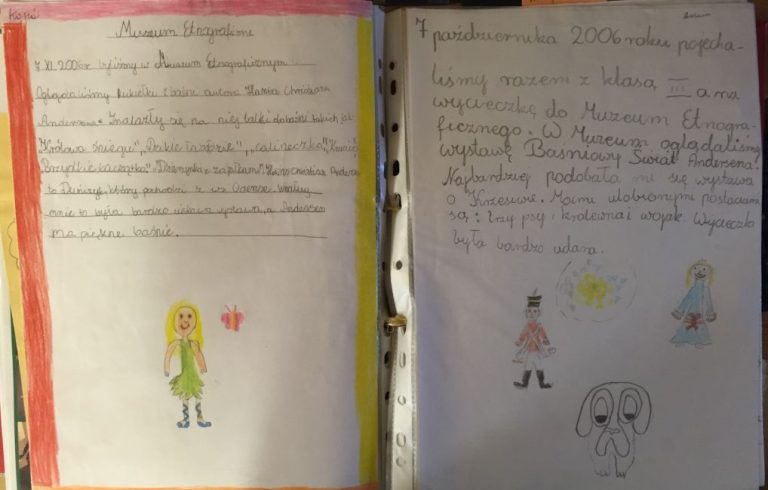 Kasia
Muszeum Etnograficzne
7 XI 2006r byliśmy w Muzeum Etnograficznym.
Oglądaliśmy kukiełki z baśni autora Hansa Christiana
Andersena. Znalazły się na niej lalki do baśni takich jak:
"Królowa śniegu", "Dzikie łabędzie", "Calineczka", "Krzesiwo",
"Brzydkie kaczątko", "Dziewczynka z zapałkami". Hans Christian Andersen
to Duńczyk, który pochodzi z wsi Odense. Według
mnie to była bardzo ciekawa wystawa, a Andersen
ma piękne baśnie.
Adam
7 października 2006 roku pojecha-
liśmy razem z klasą III a na
wycieczkę do Muzeum Etnogra-
ficznego. W Muzeum oglądaliśmy
wystawę Baśniowy Świat Andersena.
Najbardziej podobała mi się wystawa
o Krzesiwie. Moimi ulubionymi postaciami
są: trzy psy i królewna i wojak. Wycieczka
była bardzo udana.